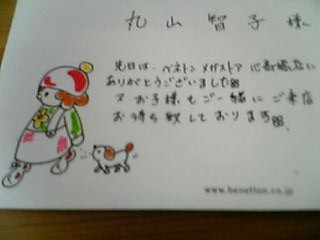 丸山 智子 様
先日は、ベネトン メガストア 心斎橋店に
ありがとうございました
又 お子様もご一緒に ご来店
お待ち致しております
www.benetton.co.jp